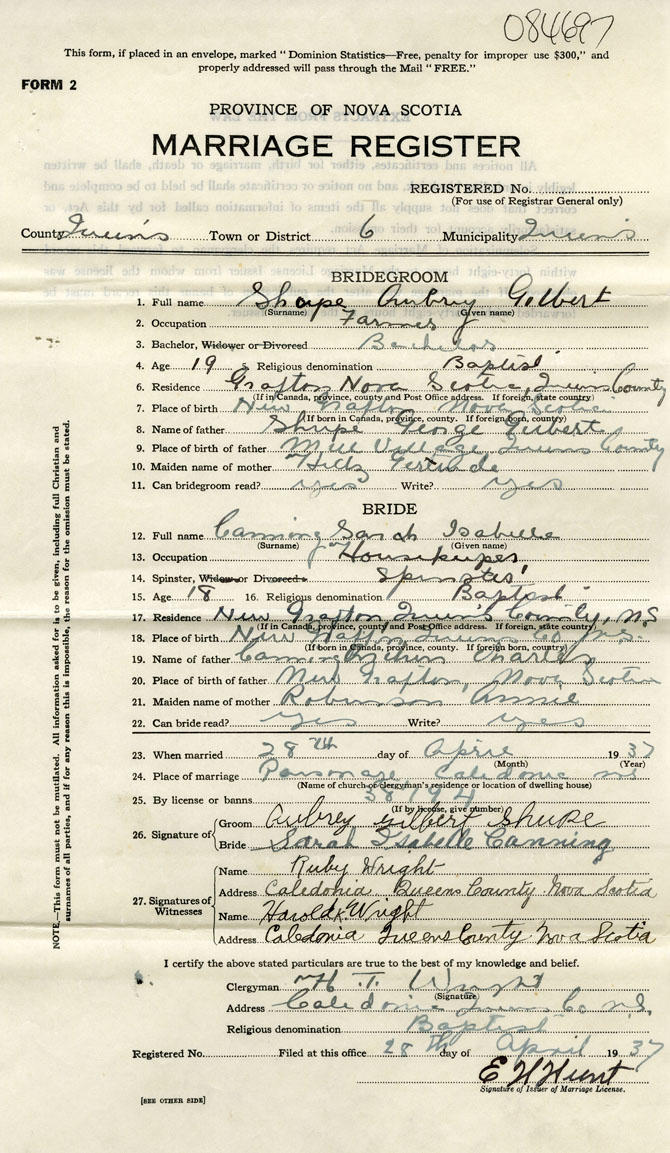 084697
This form, if placed in an envelope, marked "Dominion Statistics—Free, penalty for improper use $300," and
properly addressed will pass through the Mail "FREE."
FORM 2
PROVINCE OF NOVA SCOTIA
MARRIAGE REGISTER
REGISTERED No.
(For use of Registrar General only)
County Queens Town or District 6 Municipality Queens
BRIDEGROOM
1. Full name Shupe Aubrey Gilbert
(Surname) (Given name)
2. Occupation Farmer
3. Bachelor, Widower or Divorced Bachelor
4. Age 19 5 Religious denomination Baptist
6. Residence Grafton Nova Scotia, Queens County
(If in Canada, province, county and Post Office address. If foreign, state country)
7. Place of birth New Grafton Nova Scotia
(If born in Canada, province, county. If foreign born, country)
8. Name of father Shupe George Gilbert
9. Place of birth of father Mill Village Queens County
10. Maiden name of mother Gertrude
11. Can bridegroom read? yes Write? yes
BRIDE
12. Full name Canning Sarah Isabelle
(Surname) (Given name)
13. Occupation Housekeeper
14. Spinster, Widow or Divorced Spinster
15. Age 18 16. Religious denomination Baptist
17. Residence New Grafton, Queen's County, N.S
(If in Canada, province, county and Post Office address. If foreign, state country)
18. Place of birth New Grafton Queens Co. N.S.
(If born in Canada, province, county. If foreign born, country)
19. Name of father Canning Arthur Charles
20. Place of birth of father New Grafton, Nova Scotia
21. Maiden name of mother Robinson Annie
22. Can bride read? yes Write? yes
23. When married 28th day of April 1937
(Month) (Year)
24. Place of marriage Parsonage Caledonia N.S
(Name of church or clergyman's residence or location of dwelling house)
25. By license or banns
(If by license, give number)
26. Signature of Groom Aubrey Gilbert Shupe
Bride Sarah Isabelle Canning
27. Signatures of Witnesses
Name Ruby Wright
Address Caledonia Queens County Nova Scotia
Name Harold Wright
Address Caledonia Queens County Nova Scotia
I certify the above stated particulars are true to the best of my knowledge and belief.
Clergyman H. T. Wright
(Signature)
Address Caledonia Queens Co N.S.
Religious denomination Baptist
Registered No. Filed at this office 28th day of April 1937
E H Hunt
Signature of Issuer of Marriage License.
[SEE OTHER SIDE]
NOTE.—This form must not be mutilated. All information asked for is to be given, including full Christian and
surnames of all parties, and if for any reason this is impossible, the reason for the omission must be stated.